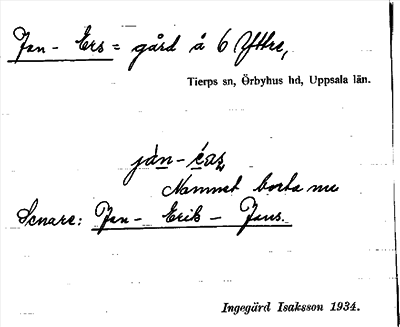 Jan-Ers = gård å 6 Yttre,
Tierps sn, Örbyhus hd, Uppsala län.
Nammet borta nu
Senare: Jan-Erik-Jans.
Ingegärd Isaksson 1934.